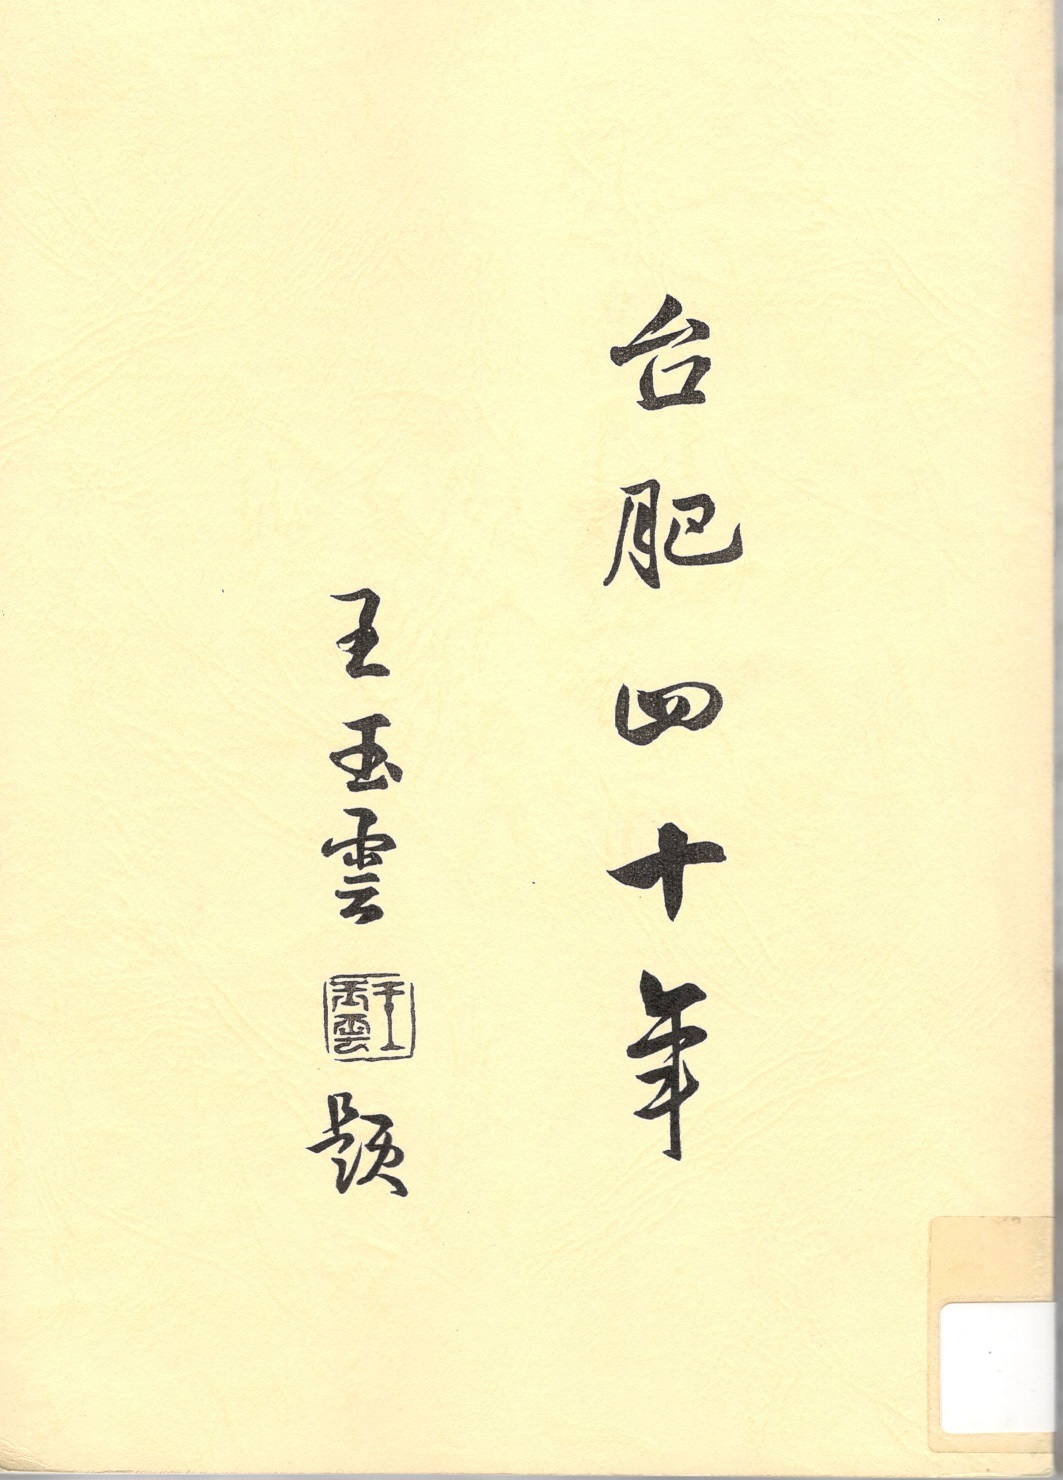 台肥四十年
王玉雲
王玉雲
題